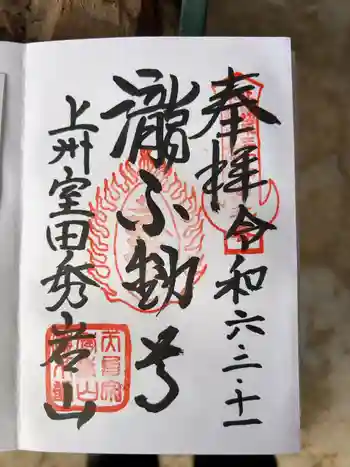 奉拝 令和六・三・十一
瀧不動尊
上州室田秀岩山